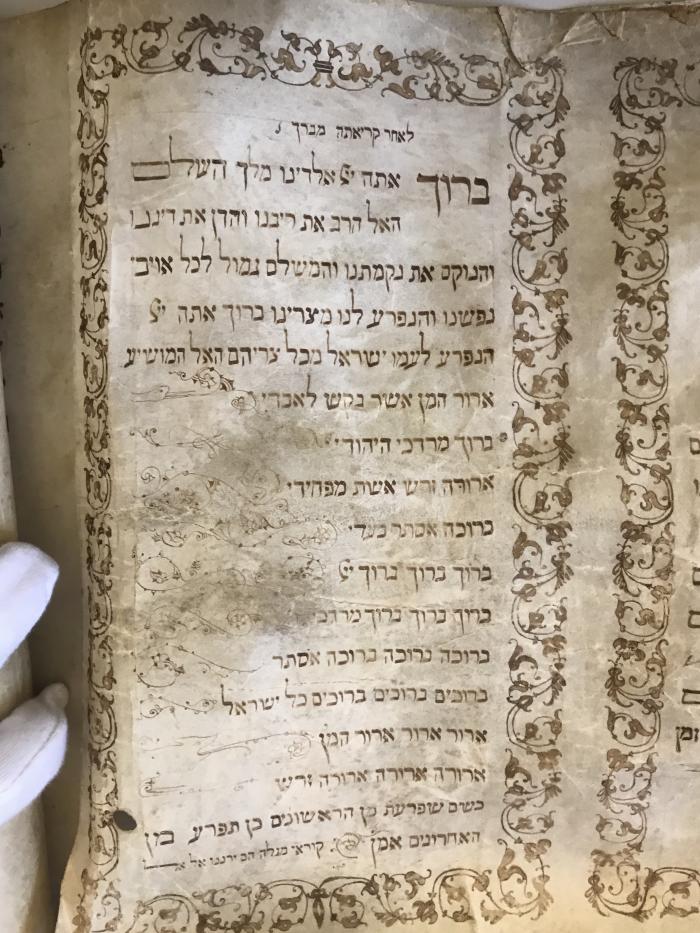 לאחר קריאתה מברך
ברוך אתה יי אלדינו מלך השלם
האל הרב את ריבנו והדן את דיננו
והנוקם את נקמתנו והמשלם גמול לכל אויבי
נפשנו והנפרע לנו מצרינו ברוך אתה יי
הנפרע לעמו ישראל מכל צריהם האל המושיע
ארור המן אשר בקש לאבדי
ברוך מרדכי היהודי
ארורה זרש אשת מפחידי
ברוכה אסתר בעדי
ברוך ברוך ברוך יי
ברוך ברוך ברוך מרדכי
ברוכה ברוכה ברוכה אסתר
ברוכים ברוכים ברוכים כל ישראל
ארור ארור ארור המן
ארורה ארורה ארורה זרש
כשים שופרעת מן הראשונים כן תפרע מן
האחרונים אמן
קוראי מגלה הם ירננו אל אל